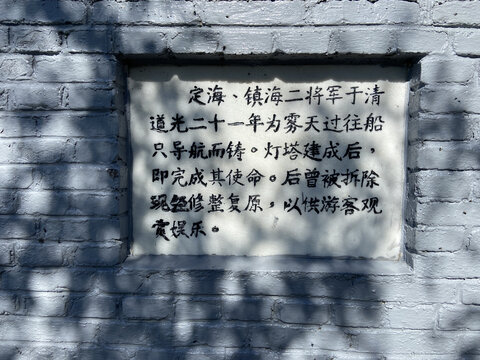 定海、镇海二将军于清
道光二十一年为雾天过往船
只导航而铸。灯塔建成后，
即完成其使命。后曾被拆除
现经修整复原，以供游客观
赏娱乐。